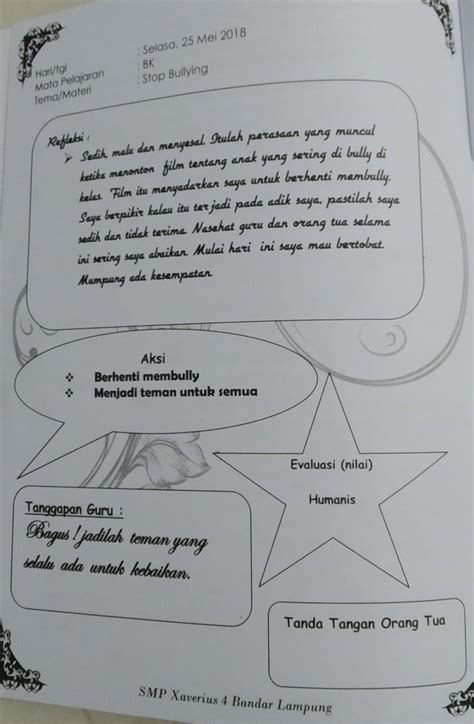 Hari/tgl : Selasa, 25 Mei 2018
Mata Pelajaran : BK
Tema/Materi : Stop Bullying
Refleksi :
➢ Sedih, malu dan menyesal. Itulah perasaan yang muncul
ketika menonton film tentang anak yang sering di bully di
kelas. Film itu menyadarkan saya untuk berhenti membully.
Saya berpikir kalau itu terjadi pada adik saya, pastilah saya
sedih dan tidak terima. Nasehat guru dan orang tua selama
ini sering saya abaikan. Mulai hari ini saya mau bertobat.
Mumpung ada kesempatan.
Aksi
❖ Berhenti membully
❖ Menjadi teman untuk semua
Evaluasi (nilai)
Humanis
Tanggapan Guru :
Bagus! jadilah teman yang
selalu ada untuk kebaikan.
Tanda Tangan Orang Tua
SMP Xaverius 4 Bandar Lampung